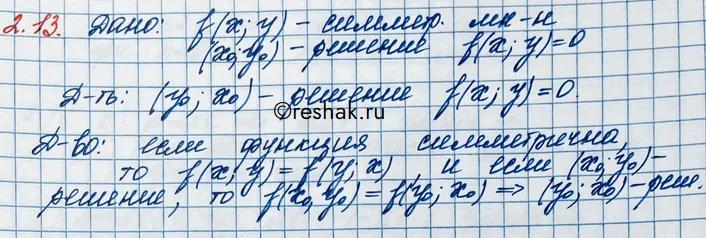 2.13. Дано: f(x; y) - симметр. мн-н
(x₀; y₀) - решение f(x; y)=0
Д-ть: (y₀; x₀) - решение f(x; y)=0.
©reshak.ru
Д-во: если функция симметрична,
то f(x; y) = f(y; x) и если (x₀; y₀) -
решение, то f(x₀, y₀) = f(y₀; x₀) ⇒ (y₀; x₀) - реш.